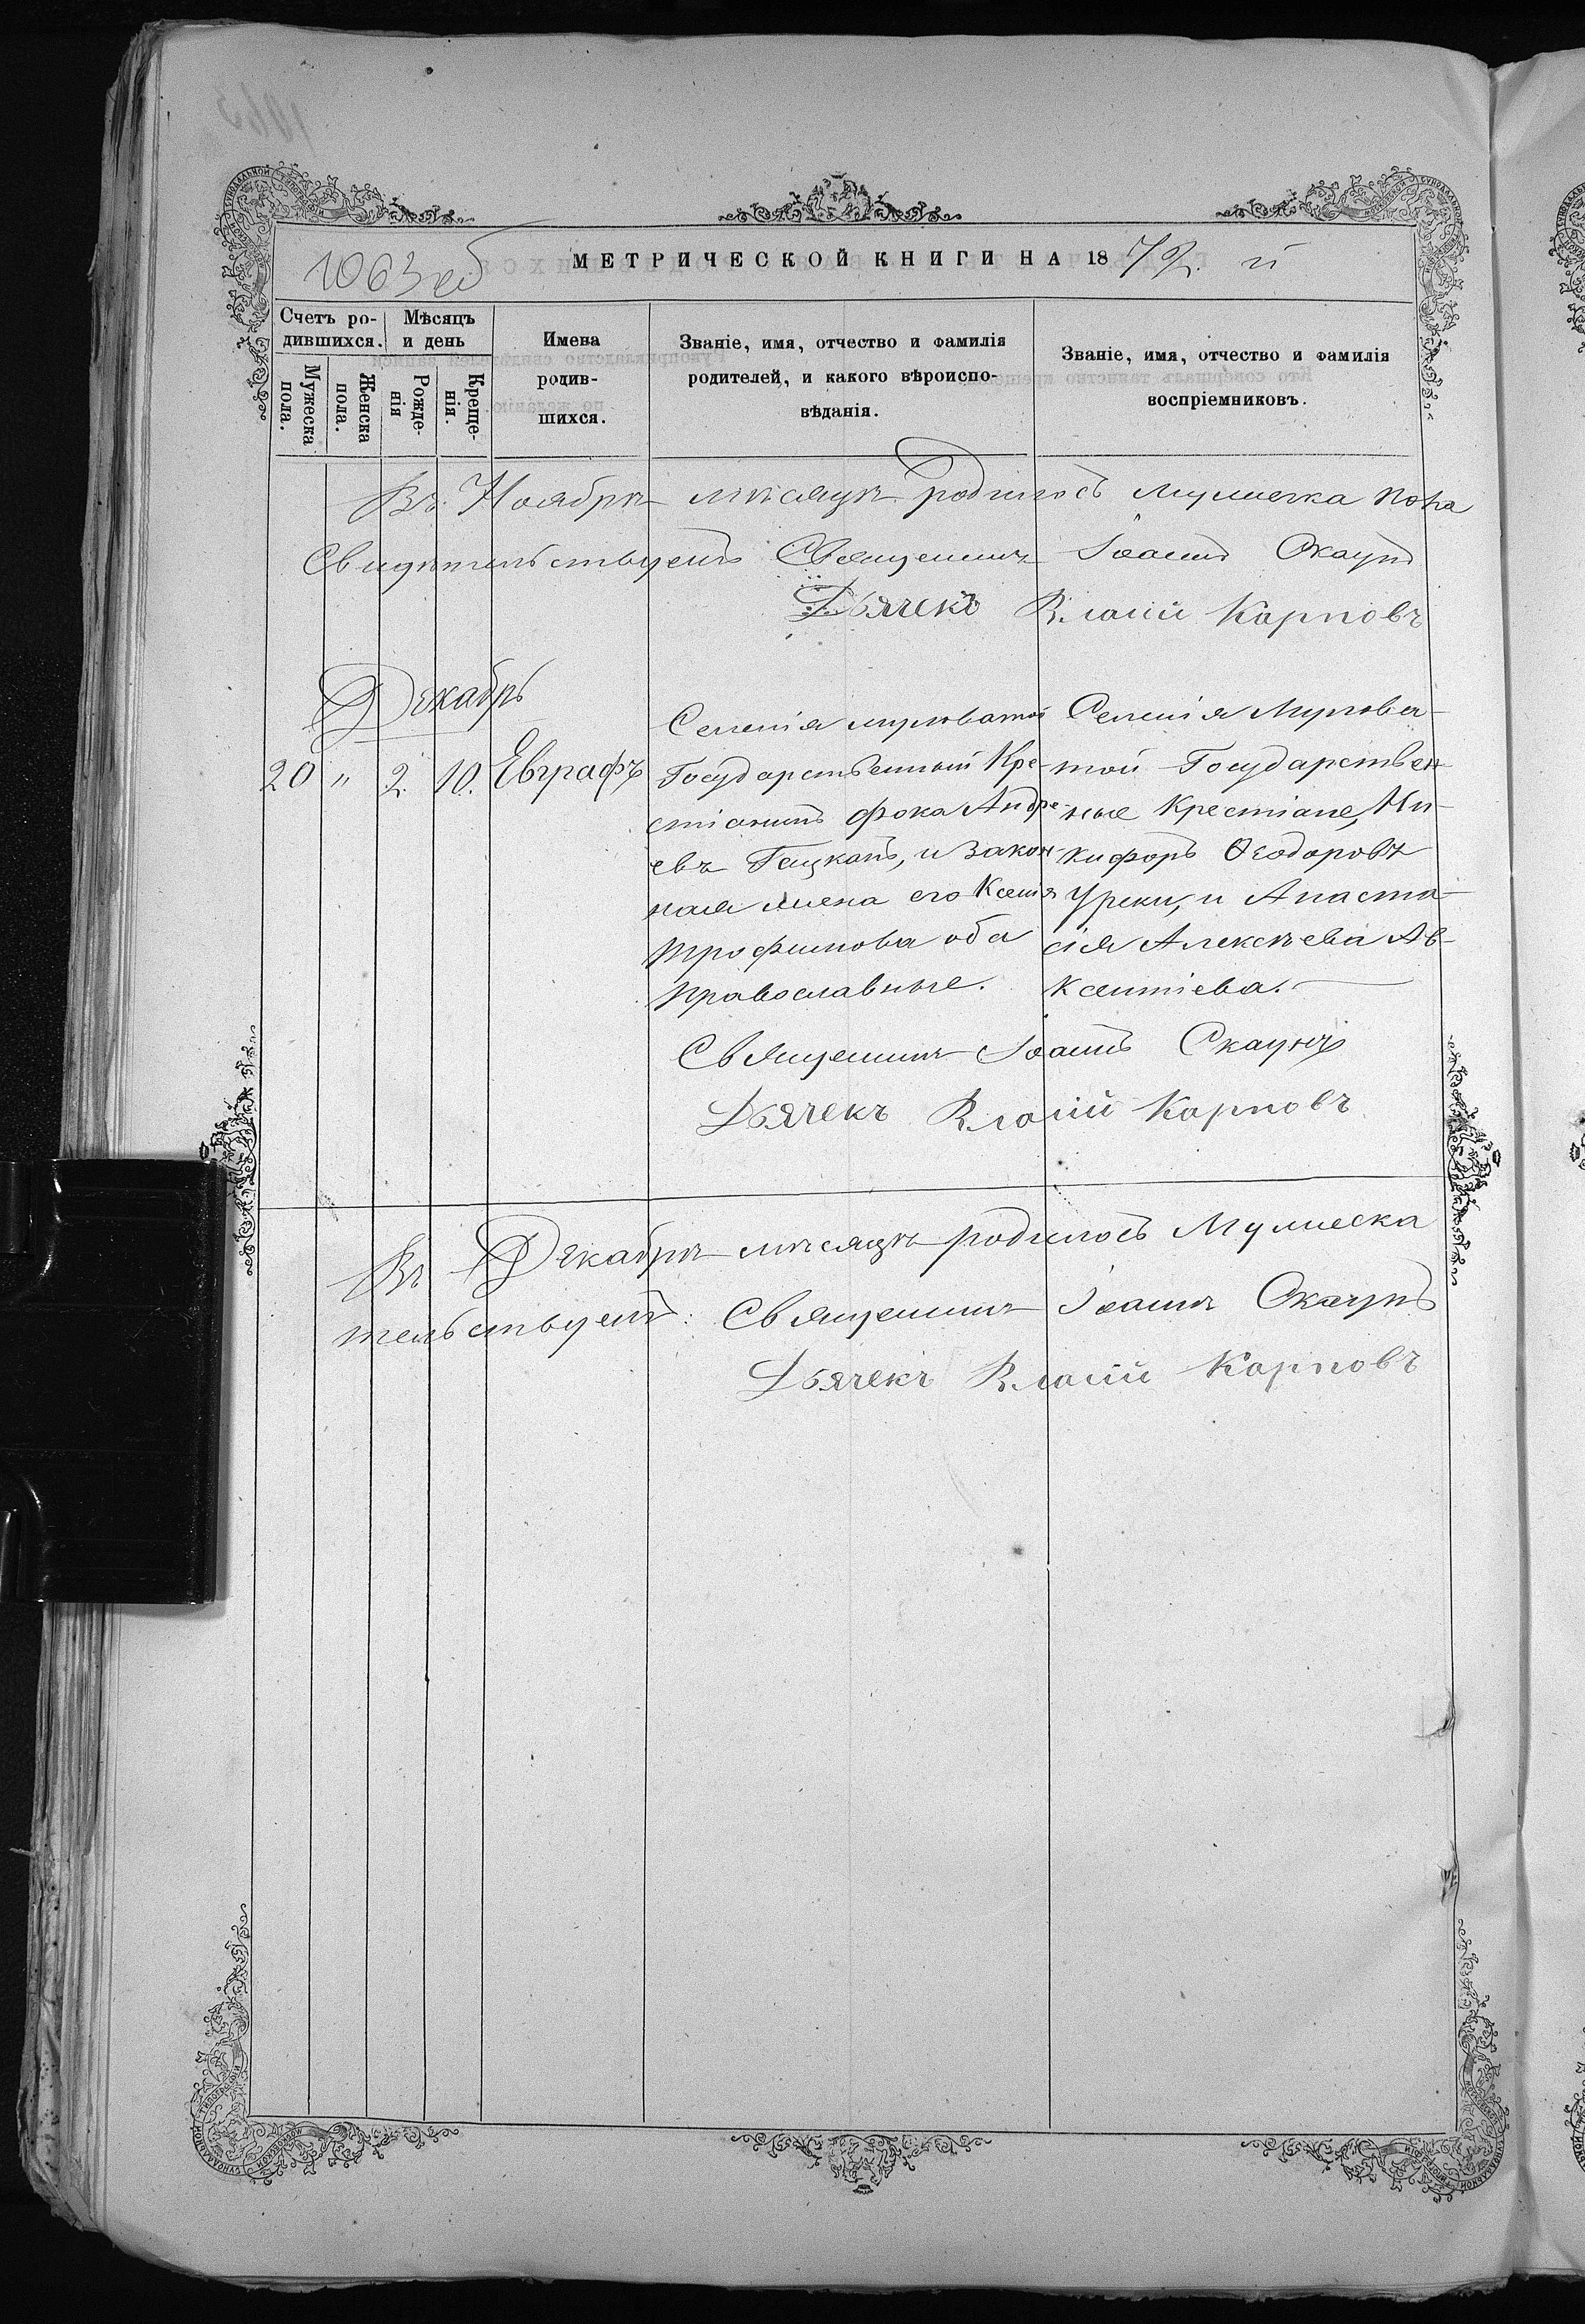 1063 об
МЕТРИЧЕСКОЙ КНИГИ НА 1872. й
Счетъ ро-
дившихся.
Мужеска
пола.
Женска
пола.
Мѣсяцъ
и день
Рожде-
нія
Креще-
нія.
Имена
родив-
шихся.
Званіе, имя, отчество и фамилія
родителей, и какого вѣроиспо-
вѣданія.
Званіе, имя, отчество и фамилія
воспріемниковъ.
Въ Ноябрѣ мѣсяцѣ родилось мужеска пола
Свидѣтельствуетъ Священникъ Іоаннъ Скаунъ
Дьячекъ Власій Карповъ
Декабрь
20 " 2. 10. Евграфъ
Селенія
Государственный Кре-
стіанинъ Фока Андре-
евъ Гацканъ, и закон-
ная жена его Ксенія
Трофимова оба
православные.
Селенія
той Государствен
ные Крестіане, Ни-
кифоръ Ѳеодоровъ
Уреки, и Анаста-
сія Алексѣева Ав-
ксентіева.
Священникъ Іоаннъ Скаунъ
Дьячекъ Власій Карповъ
Въ Декабрѣ мѣсяцѣ родилось Мужеска
тельствуетъ: Священникъ Іоаннъ Скаунъ
Дьячекъ Власій Карповъ